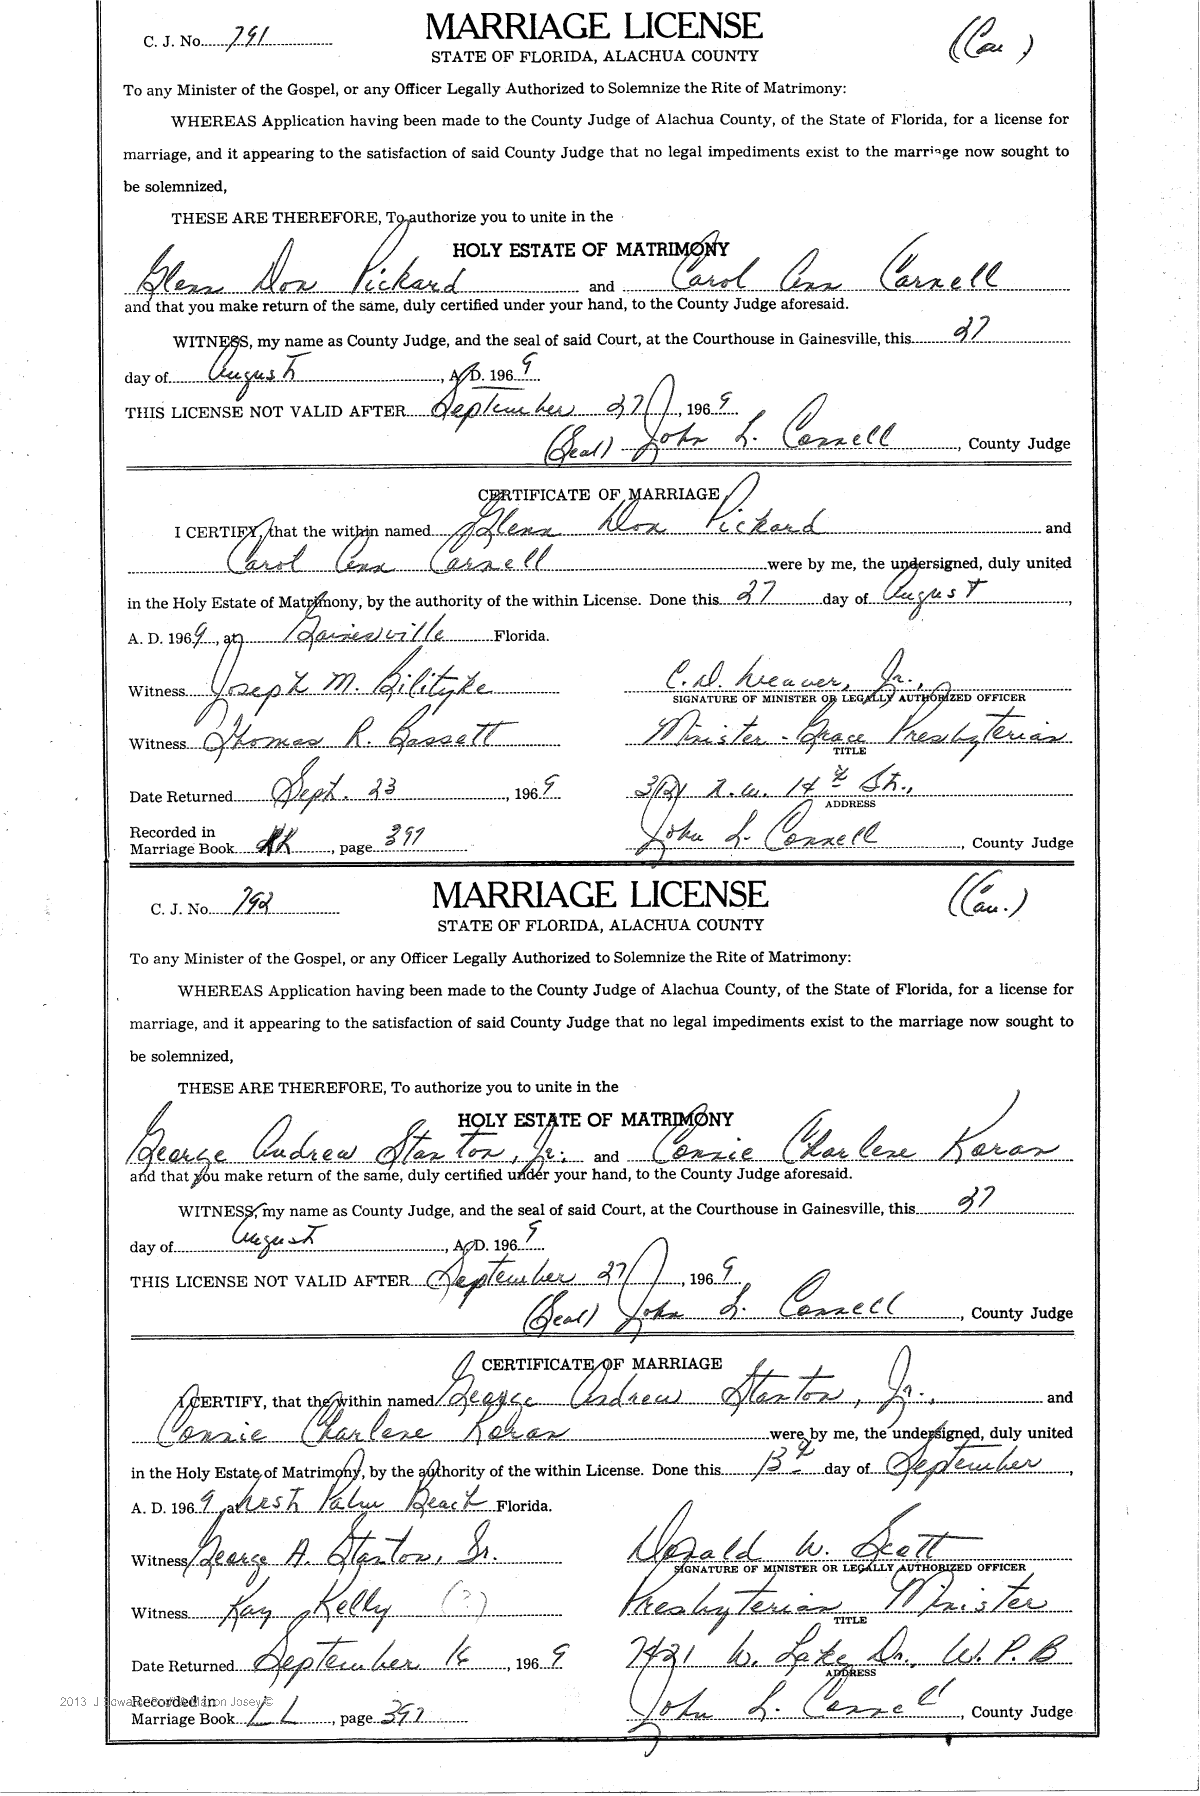 C. J. No. 791
MARRIAGE LICENSE
(Cau )
STATE OF FLORIDA, ALACHUA COUNTY
To any Minister of the Gospel, or any Officer Legally Authorized to Solemnize the Rite of Matrimony:
WHEREAS Application having been made to the County Judge of Alachua County, of the State of Florida, for a license for
marriage, and it appearing to the satisfaction of said County Judge that no legal impediments exist to the marriage now sought to
be solemnized,
THESE ARE THEREFORE, To authorize you to unite in the
HOLY ESTATE OF MATRIMONY
Glenn Don Pickard and Carol Ann Carnell
and that you make return of the same, duly certified under your hand, to the County Judge aforesaid.
WITNESS, my name as County Judge, and the seal of said Court, at the Courthouse in Gainesville, this 27
day of August, A. D. 1969
THIS LICENSE NOT VALID AFTER September 27, 1969
(Seal) John L. Connell, County Judge
CERTIFICATE OF MARRIAGE
I CERTIFY, that the within named Glenn Don Pickard and
Carol Ann Carnell were by me, the undersigned, duly united
in the Holy Estate of Matrimony, by the authority of the within License. Done this 27 day of August,
A. D. 1969, at Gainesville Florida.
Witness Joseph M. C.D. Weaver, Jr.,
SIGNATURE OF MINISTER OR LEGALLY AUTHORIZED OFFICER
Witness Thomas R. Bassett Minister - Grace Presbyterian
TITLE
Date Returned Sept. 23, 1969 3121 N.W. 14th St.,
ADDRESS
Recorded in
Marriage Book, page 397 John L. Connell, County Judge
C. J. No. 792
MARRIAGE LICENSE
(Cau.)
STATE OF FLORIDA, ALACHUA COUNTY
To any Minister of the Gospel, or any Officer Legally Authorized to Solemnize the Rite of Matrimony:
WHEREAS Application having been made to the County Judge of Alachua County, of the State of Florida, for a license for
marriage, and it appearing to the satisfaction of said County Judge that no legal impediments exist to the marriage now sought to
be solemnized,
THESE ARE THEREFORE, To authorize you to unite in the
HOLY ESTATE OF MATRIMONY
George Andrew Stanton, Jr. and Connie Charlene Koran
and that you make return of the same, duly certified under your hand, to the County Judge aforesaid.
WITNESS, my name as County Judge, and the seal of said Court, at the Courthouse in Gainesville, this 27
day of August, A. D. 1969
THIS LICENSE NOT VALID AFTER September 27, 1969
(Seal) John L. Connell, County Judge
CERTIFICATE OF MARRIAGE
I CERTIFY, that the within named George Andrew Stanton, Jr., and
Connie Charlene Koran were by me, the undersigned, duly united
in the Holy Estate of Matrimony, by the authority of the within License. Done this 13th day of September,
A. D. 1969, at West Palm Beach Florida.
Witness George A. Stanton, Sr. Donald W. Scott
SIGNATURE OF MINISTER OR LEGALLY AUTHORIZED OFFICER
Witness Kay Kelly (?) Presbyterian Minister
TITLE
Date Returned September 16, 1969 7421 W. Lake Dr., W. P. B
ADDRESS
2013 J Josey ©
Recorded in
Marriage Book L L, page 397 John L. Connell, County Judge